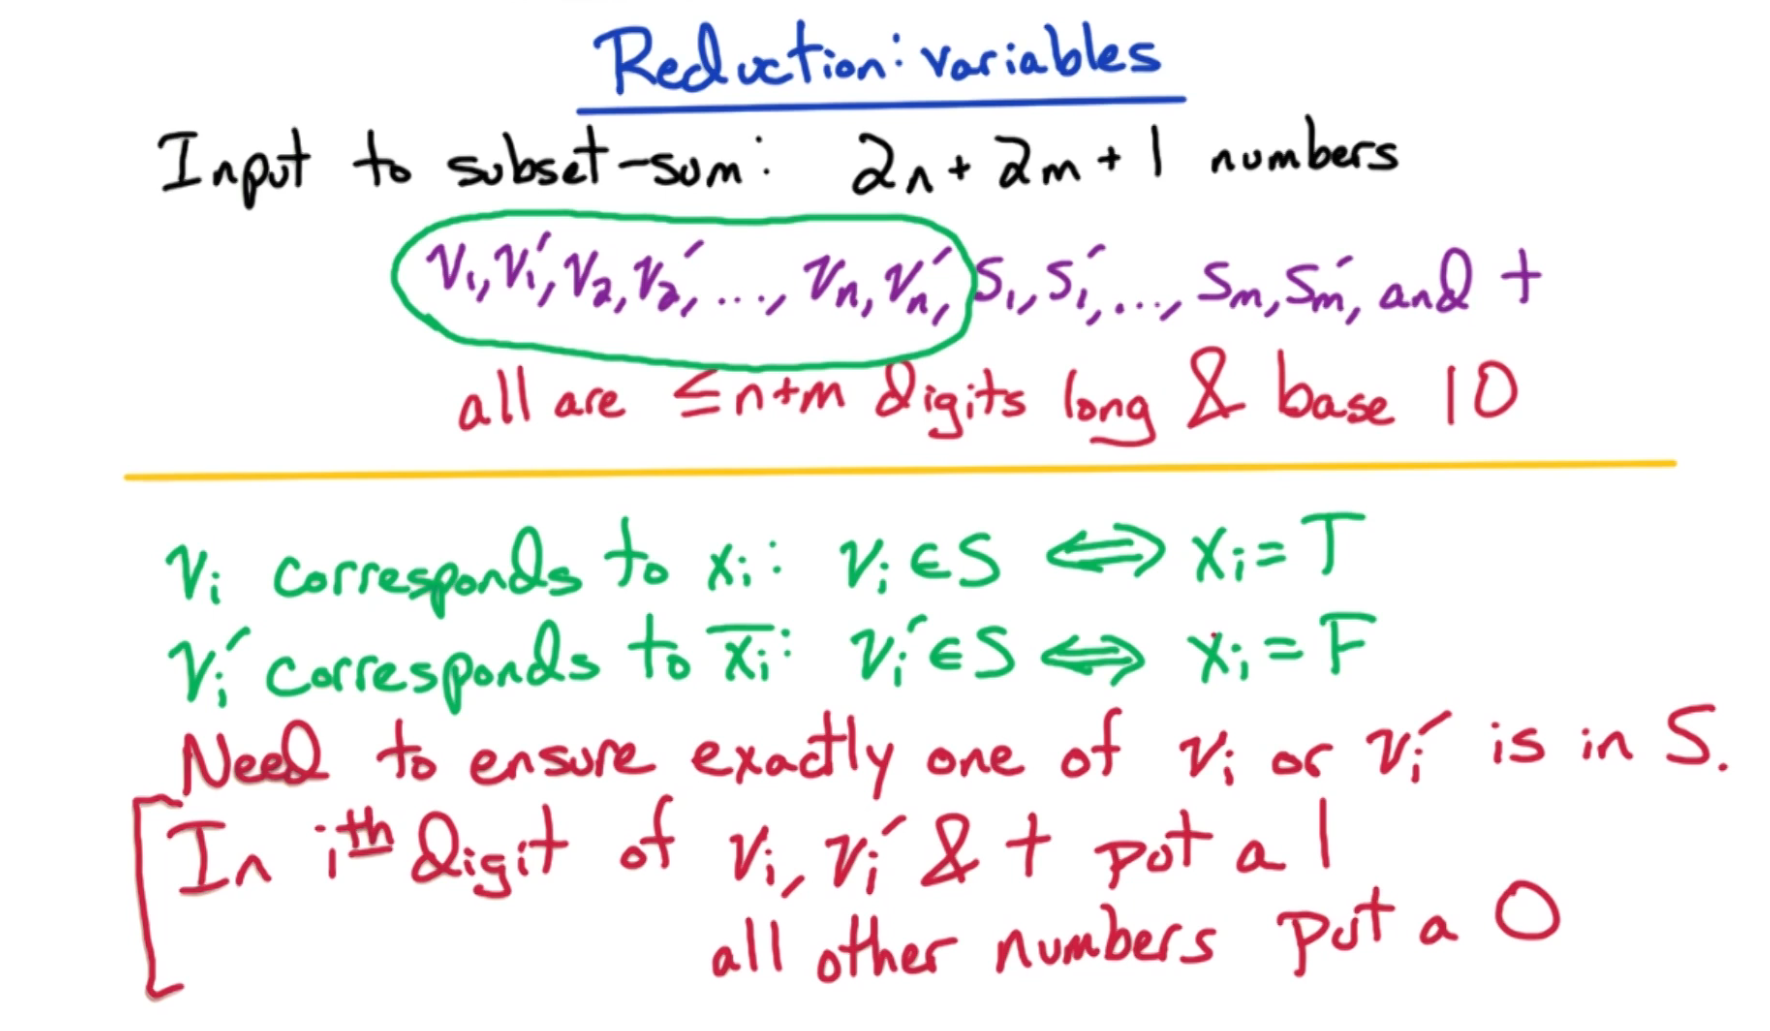 Reduction: variables
Input to subset-sum: 2n + 2m + 1 numbers
v₁, v₁′, v₂, v₂′, ..., vₙ, vₙ′, s₁, s₁′, ..., sₘ, sₘ′, and t
all are ≤ n+m digits long & base 10
vᵢ corresponds to xᵢ: vᵢ ∈ S ⟺ xᵢ = T
vᵢ′ corresponds to x̄ᵢ: vᵢ′ ∈ S ⟺ xᵢ = F
Need to ensure exactly one of vᵢ or vᵢ′ is in S.
In iᵗʰ digit of vᵢ, vᵢ′ & t put a 1
all other numbers put a 0